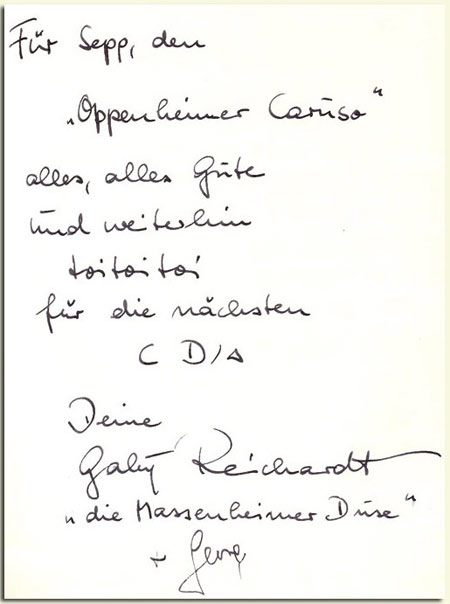 Für Sepp, den
„Oppenheimer Caruso"
alles, alles Gute
und weiterhin
toitoitoi
für die nächsten
CD/s
Deine
Gaby Reichardt
„die Massenheimer Duse"
+ Georg